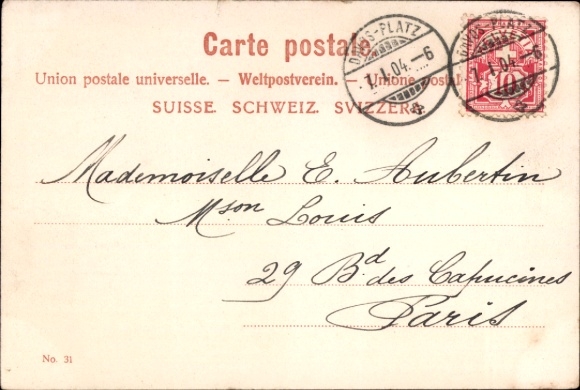 Carte postale.
DAVOS-PLATZ
1.I.04.-6
DAVOS-PLATZ
1.I.04.-6
HELVETIA
10
Union postale universelle. — Weltpostverein. — Unione postale
SUISSE. SCHWEIZ. SVIZZERA.
Mademoiselle E. Aubertin
Mson Louis
29 Bd des Capucines
Paris
No. 31